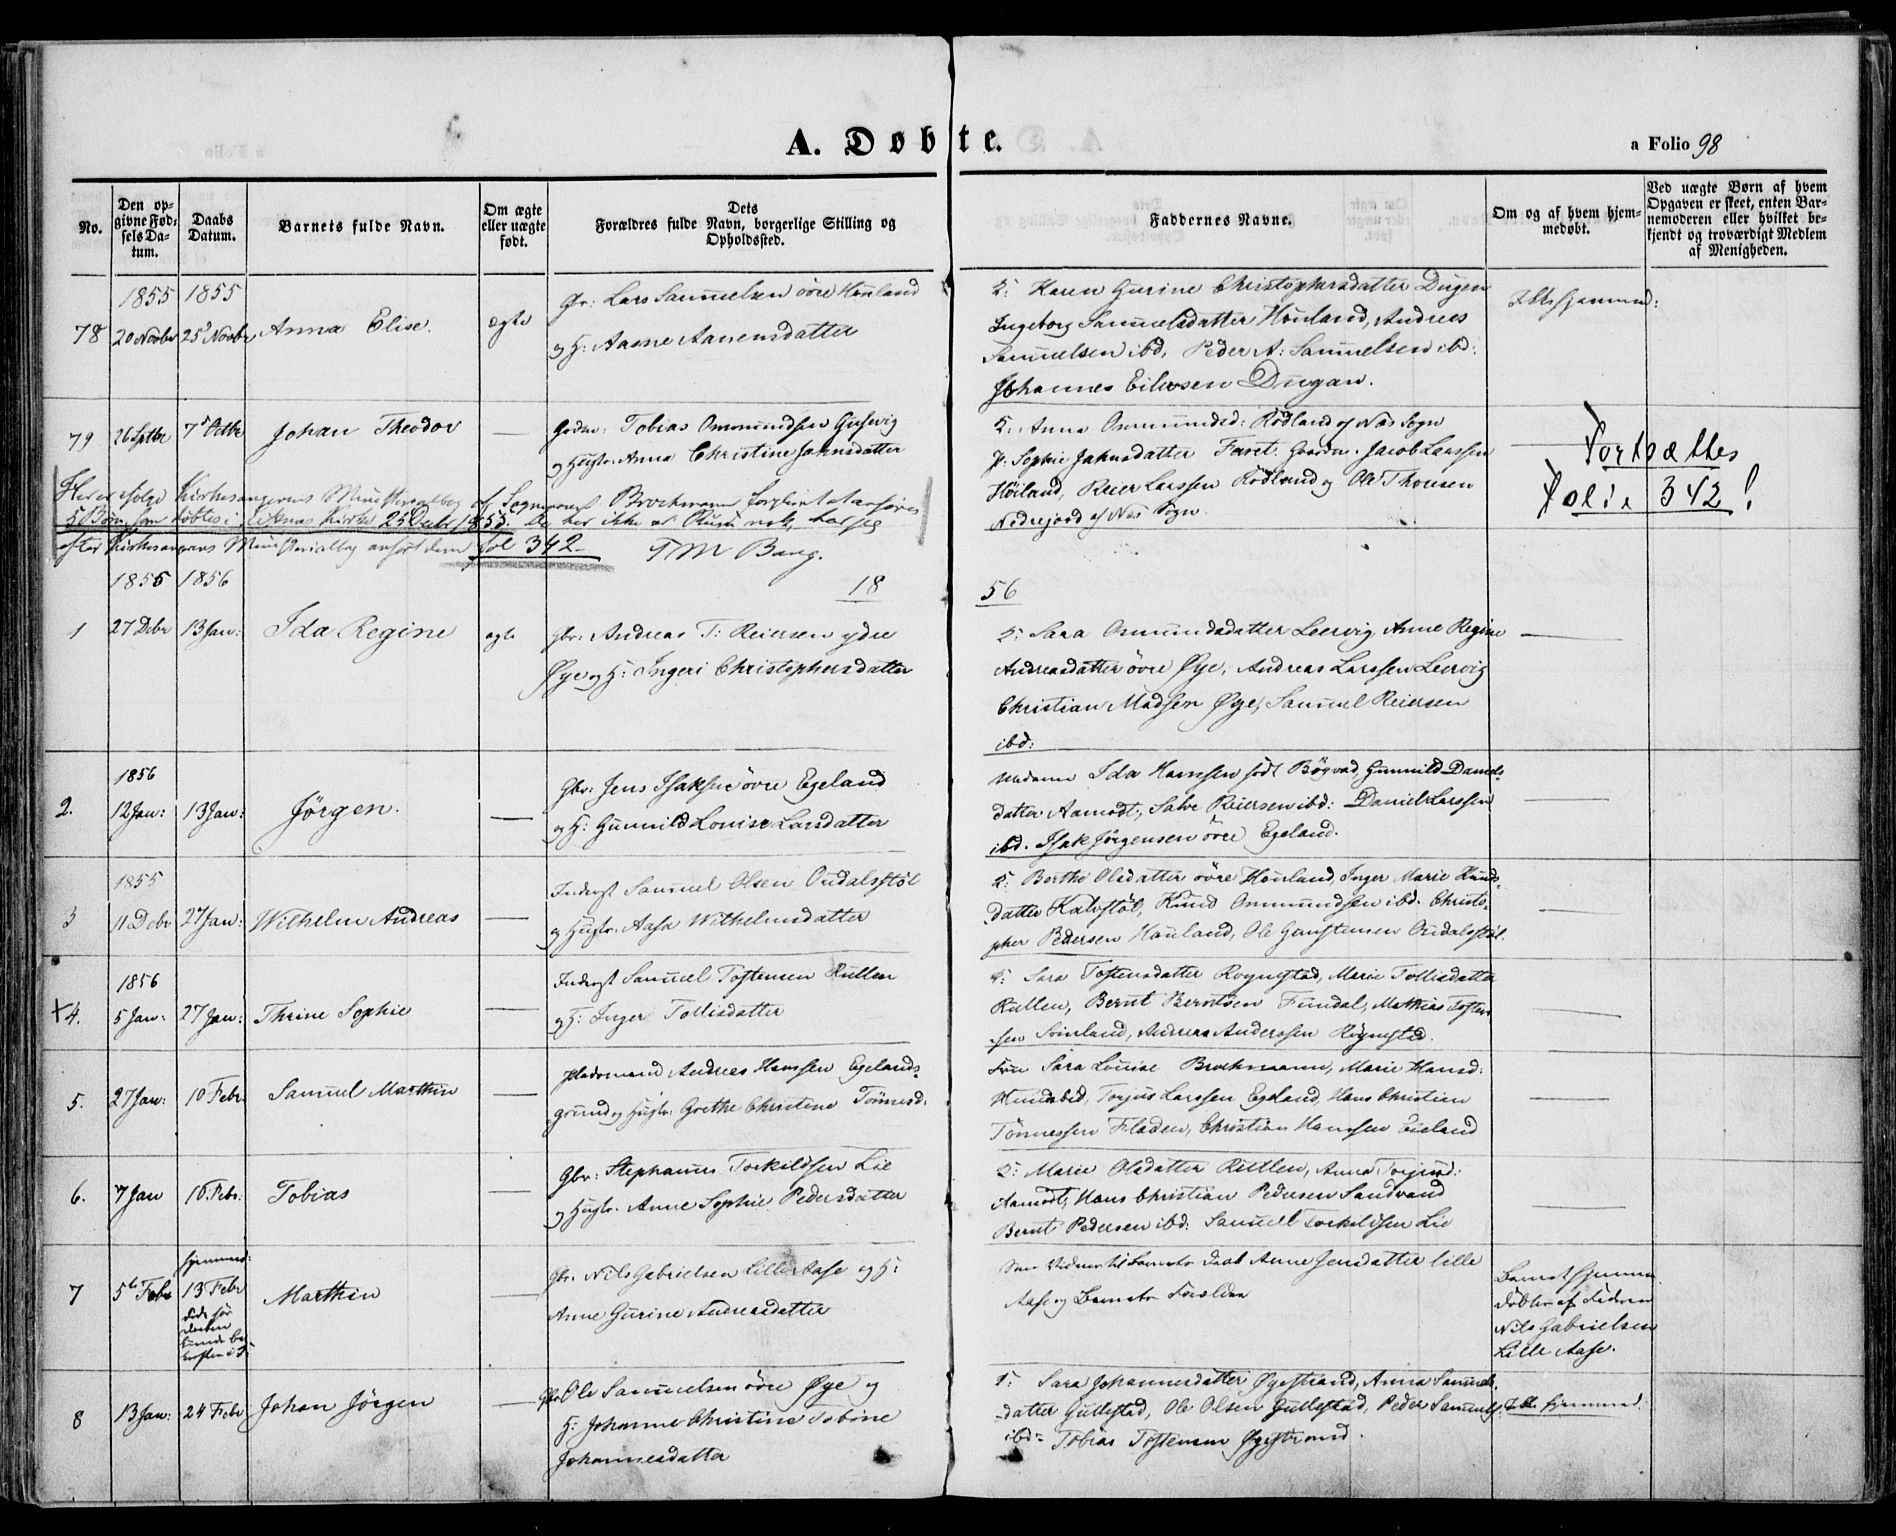 A. Døbte.
a Folio 98
No.
Den opgivne Fødselsdatum.
Daabs Datum.
Barnets fulde Navn.
Om ægte eller uægte født.
Dets Forældres fulde Navn, borgerlige Stilling og Opholdssted.
Faddernes Navne.
Om og af hvem hjemmedøbt.
Ved uægte Børn af hvem Opgaven er skeet, enten Barnemoderen eller hvilket bekjendt og troværdigt Medlem af Menigheden.
1855 1855
78 20 Novbr 25 Novbr Anna Elise. ægte
Gbr: Lars Samuelsen øvre Houland
og H: Aasne Aanensdatter
Karen Gurine Christophersdatter Dugan
Ingeborg Samuelsdatter Houland, Andreas
Samuelsen ibd, Peder A: Samuelsen ibd:
Johannes Eilersen Dugan.
79 26 Sptbr 7 Octbr Johan Theodor —
Tobias Ommundsen
og Hustr. Anna Christine Jahnsdatter
Anna Ommundsd: Rødland af Næs Sogn
P: Sophie Jahnsdatter Jacob Larssen
Høiland, Reier Larssen Rødland og Ole Thorsen
Nedrejord af Næs Sogn.
Fortsættes
Folio 342!
Her er ifølge Kirkesangerens Ministerialbog af Sogneprest Brochmann forglemt at anføres
5 Børn, som døbtes i Kirke 25 Debr 1855. Da her ikke er Plads nok, har jeg
efter Kirkesangerens Ministerialbog anført dem fol 342.
T M Bang.
1855 1856
18 56
1 27 Debr 13 Jan: Ida Regine ægte
Gbr: Andreas T: Reiersen ydre
Øye og H: Ingeri Christophersdatter
Sara Osmundsdatter Leervig Anne Regine
Andreasdatter øvre Øye, Andreas Larssen Leervig
Christian Madsen Øye, Samuel Reiersen
ibd:
1856
2. 12 Jan: 13 Jan: Jörgen. —
Gbr: Jens Isaksen øvre Egeland
og H: Gunnild Louise Larsdatter
Madame Ida Hanssen født Bøgvad, Gunnild Daniels-
datter Aamodt, Salve Reiersen ibd: Daniel Larssen
ibd. Isak Jörgensen øvre Egeland.
1855
3 11 Debr 27 Jan: Wilhelm Andreas —
Inderst Samuel Olsen Oudalsstøl
og Hustr. Aasa Wilhelmsdatter
Berthe Olsdatter øvre Houland, Inger Marie Knuds-
datter Kalvstøl, Knud Ommundsen ibd. Christo-
pher Pedersen Houland, Ole Gunstensen Oudalsstøl.
1856
+4. 5 Jan: 27 Jan: Thrine Sophie —
Inderst Samuel Tostensen Rullen
og H: Inger Tollisdatter
Sara Tostensdatter Røynestad, Marie Tollisdatter
Rullen, Bernt Berntsen Mathias Tosten
sen Andreas Anderssen Röynestad.
5. 27 Jan: 10 Febr. Samuel Marthin —
Pladsmand Andreas Hanssen Egelands-
grund og Hustr. Grethe Christine Tönnesd.
Fru Sara Louise Brochmann, Marie Hansd:
Torjus Larssen Egeland, Hans Christian
Tönnessen Fladen, Christian Hanssen Eieland
6. 7 Jan 10 Febr: Tobias —
Gbr: Stephanus Torkildsen Lie
og Hustr. Anne Sophie Pedersdatter
Marie Olsdatter Rullen, Anna
Aamodt, Hans Christian Pedersen Sandvand
Bernt Pedersen ibd: Samuel Torkildsen Lie
hjemmed:
7 5 Febr 13 Febr Marthin —
døde før
Daaben
kunde be-
Gbr. Nils Gabrielsen Lille Aase og H:
Anne Gurine Andreasdatter
Som Vidner til Barnets Daab Anne Jensdatter lille
Aase og Barnets Forældre
Barnet hjemme
døbt af Faderen
Nils Gabrielsen
Lille Aase.
8 13 Jan: 24 Febr Johan Jörgen —
Gbr Ole Samuelsen øvre Øye og
H: Johanne Christine Tobine
Johannesdatter
Sara Johannesdatter Øyestrand, Anna Samuels-
datter Gullestad, Ole Olsen Gullestad, Peder Samuels:
ibd- Tobias Tostensen Øyestrand.
Ikke hjemmed: